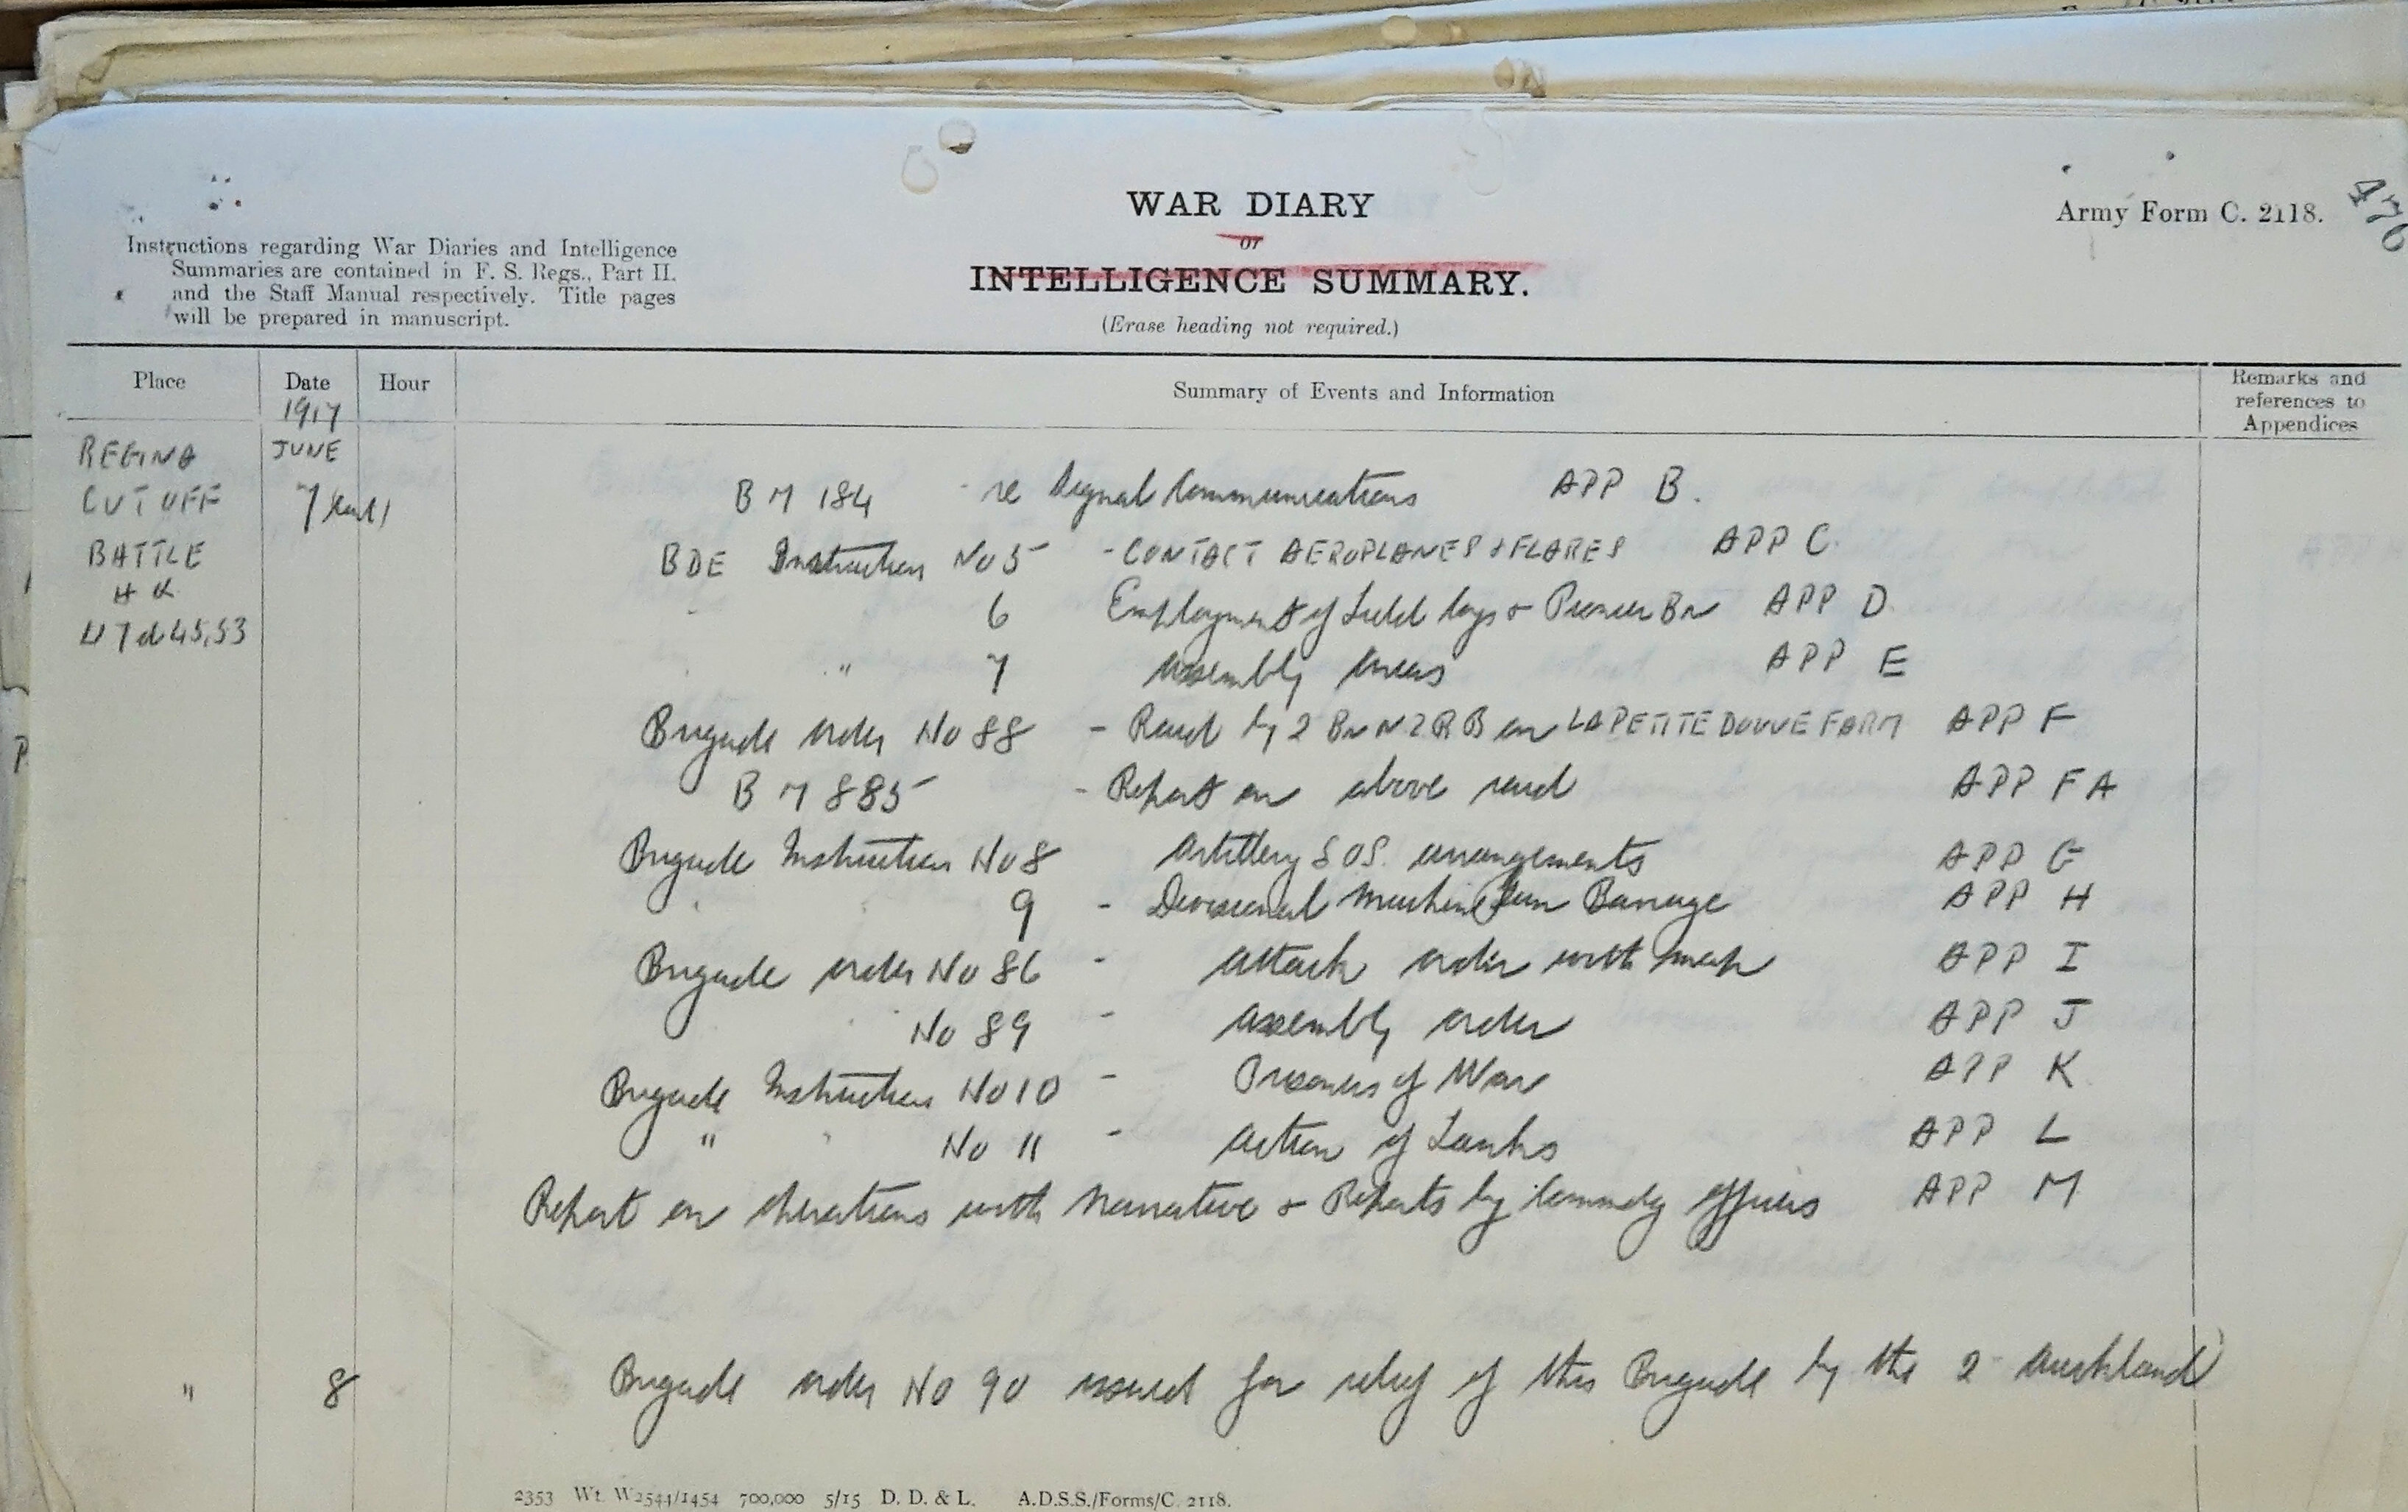 476
Army Form C. 2118.
WAR DIARY
or
INTELLIGENCE SUMMARY.
(Erase heading not required.)
Instructions regarding War Diaries and Intelligence
Summaries are contained in F. S. Regs., Part II.
and the Staff Manual respectively. Title pages
will be prepared in manuscript.
Place Date Hour Summary of Events and Information Remarks and references to Appendices
1917
REGINA JUNE
CUT OFF 7
BATTLE
H Q
U 7 d 45,53
B M 184 - re Signal Communications APP B.
BDE Instruction No 5 - CONTACT AEROPLANES & FLARES APP C
6 Employment of Field Coys & Pioneer Bn APP D
" 7 Assembly Areas APP E
Brigade order No 88 - Raid by 2 Bn N Z R B on LA PETITE DOUVE FARM APP F
B M 885 - Report on above raid APP F A
Brigade Instruction No 8 Artillery S.O.S. arrangements APP G
9 - Divisional Machine Gun Barrage APP H
Brigade order No 86 - Attack order with map APP I
No 89 - Assembly order APP J
Brigade Instruction No 10 - Prisoners of War APP K
" " No 11 - Action of Tanks APP L
Report on operations with Narrative & Reports by Commdg Officers APP M
" 8 Brigade order No 90 issued for relief of this Brigade by the 2 Auckland
2353 Wt. W2544/1454 700,000 5/15 D. D. & L. A.D.S.S./Forms/C. 2118.